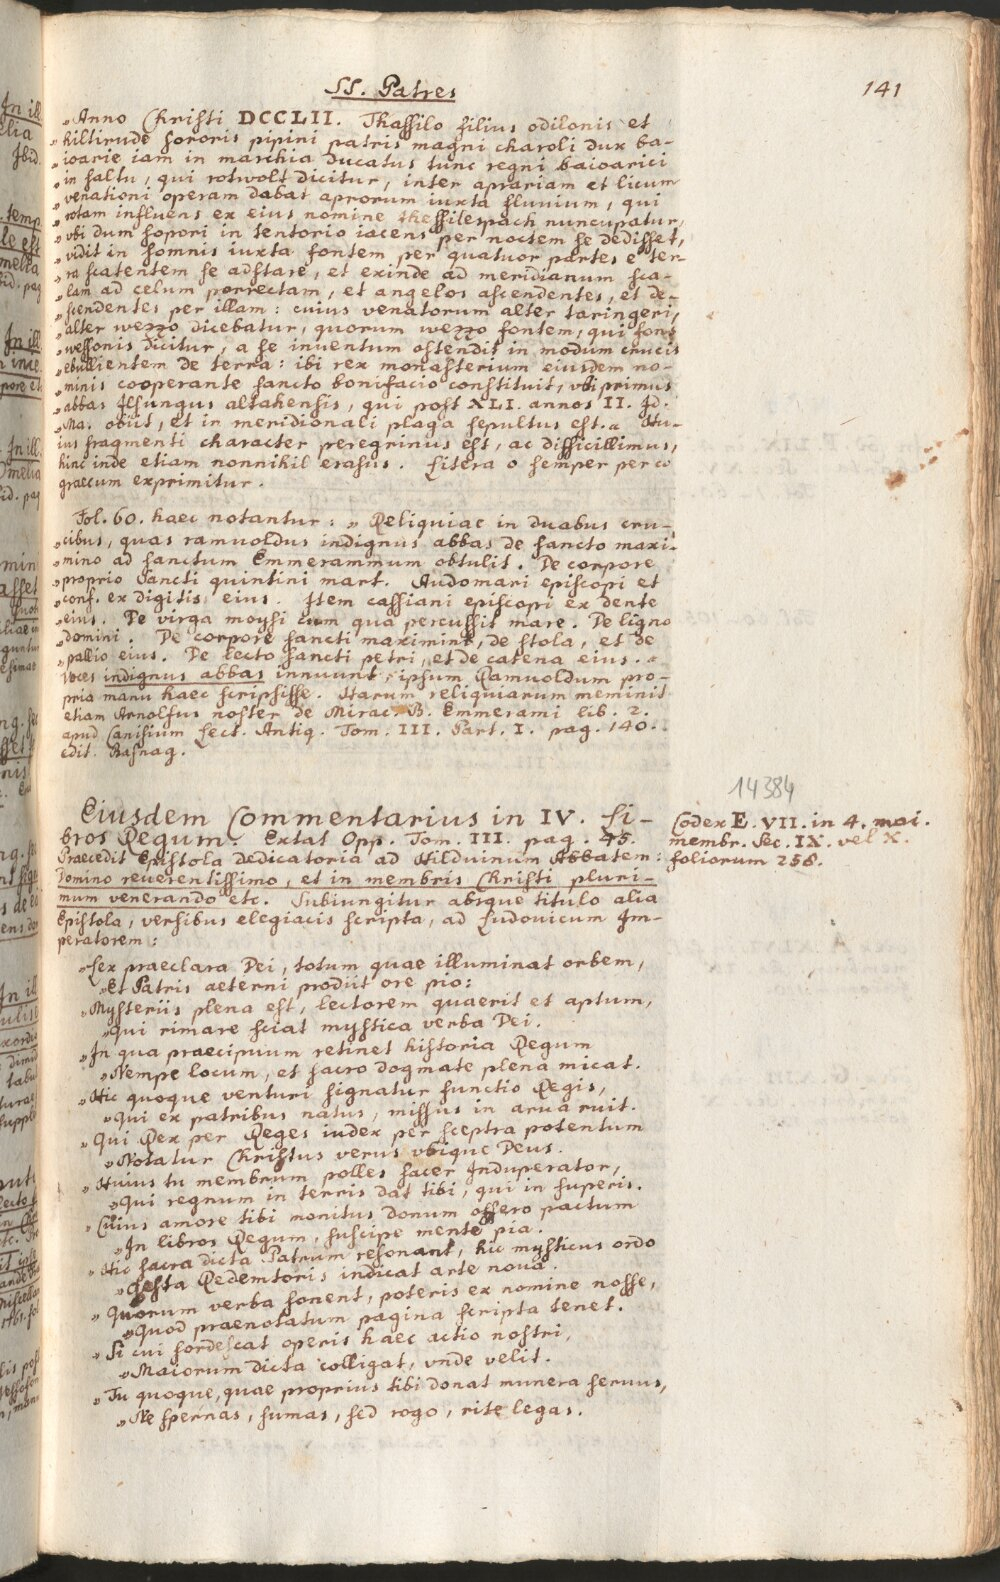 SS. Patres
141
„Anno Christi DCCLII. Thassilo filius odilonis et
„hiltirude sororis pipini patris magni charoli dux ba-
„ioarie iam in marchia ducatus tunc regni baioarici
„in saltu, qui rotwolt dicitur, inter aprariam et licum
„venationi operam dabat aprorum iuxta fluvium, qui
„rotam influens ex eius nomine thessilespach nuncupatur,
„vbi dum sopori in tentorio iacens per noctem se dedisset,
„vidit in somnis iuxta fontem per quatuor partes e ter-
„ra scatentem se adstare, et exinde ad meridianum sca-
„lam ad celum porrectam, et angelos ascendentes, et de-
„scendentes per illam: cuius venatorum alter taringeri,
„alter wezzo dicebatur, quorum wezzo fontem, qui fons
„wessonis dicitur, a se inuentum ostendit in modum crucis
„ebullientem de terra: ibi rex monasterium eiusdem no-
„minis cooperante sancto bonifacio constituit, vbi primus
„abbas Ilsungus altahensis, qui post XLI. annos II. Id.
„Ma. obiit, et in meridionali plaga sepultus est.„ Hu-
ius fragmenti character peregrinus est, ac difficillimus,
hinc inde etiam nonnihil erasus. Litera o semper per ω
graecum exprimitur.
Fol. 60. haec notantur: „Reliquiae in duabus cru-
„cibus, quas ramuoldus indignus abbas de sancto maxi-
„mino ad sanctum Emmerammum obtulit. De corpore
„proprio Sancti quintini mart. Audomari episcopi et
„conf. ex digitis eius. Item cassiani episcopi ex dente
„eius. De virga moysi cum qua percussit mare. De ligno
„domini. De corpore sancti maximini, de stola, et de
„pallio eius. De lecto sancti petri, et de catena eius.„
Voces indignus abbas innuunt, ipsum Ramuoldum pro-
pria manu haec scripsisse. Harum reliquiarum meminit
etiam Arnolfus noster de Mirac. B. Emmerami lib. 2.
apud Canisium Lect. Antiq. Tom. III. Part. I. pag. 140.
edit. Basnag.
14384
Eiusdem Commentarius in IV. Li-
bros Regum. Extat Opp. Tom. III. pag. 45.
Codex E. VII. in 4. mai.
membr. Sec. IX. vel X.
foliorum 256.
Praecedit Epistola dedicatoria ad Hilduinum Abbatem:
Domino reuerentissimo, et in membris Christi pluri-
mum venerando etc. Subiungitur absque titulo alia
Epistola, versibus elegiacis scripta, ad Ludouicum Im-
peratorem:
„Lex praeclara Dei, totum quae illuminat orbem,
„Et Patris aeterni prodiit ore pio:
„Mysteriis plena est, lectorem quaerit et aptum,
„Qui rimare sciat mystica verba Dei.
„In qua praecipuum retinet historia Regum
„Nempe locum, et sacro dogmate plena micat.
„Hic quoque venturi signatur functio Regis,
„Qui ex patribus natus, missus in arua ruit.
„Qui Rex per Reges iudex per sceptra potentum
„Notatur Christus verus vbique Deus.
„Huius tu membrum polles sacer Induperator,
„Qui regnum in terris dat tibi, qui in superis.
„Cuius amore tibi monitus donum offero pactum
„In libros Regum, suscipe mente pia.
„Hic sacra dicta Patrum resonant, hic mysticus ordo
„Gesta Redemtoris indicat arte noua.
„Quorum verba sonent, poteris ex nomine nosse,
„Quod praenotatum pagina scripta tenet.
„Si cui sordescat operis haec actio nostri,
„Maiorum dicta colligat, vnde velit.
„Tu quoque, quae proprius tibi donat munera seruus,
„Ne spernas, sumas, sed rogo, rite legas.